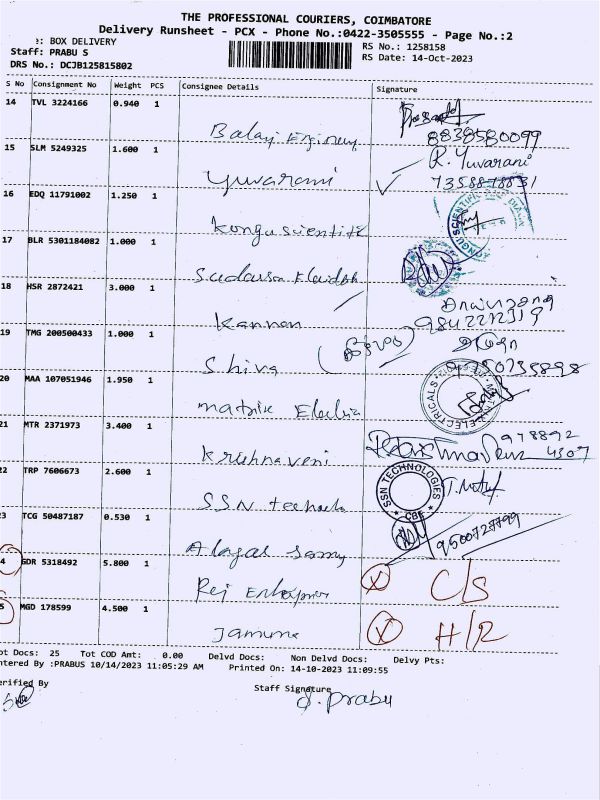 THE PROFESSIONAL COURIERS, COIMBATORE
Delivery Runsheet - PCX - Phone No.:0422-3505555 - Page No.:2
: BOX DELIVERY
RS No.: 1258158
Staff: PRABU S
RS Date: 14-Oct-2023
DRS No.: DCJB125815802
S No Consignment No Weight PCS Consignee Details Signature
14 TVL 3224166 0.940 1
8838580099
15 SLM 5249325 1.600 1 R. Yuvarani
Yuvarani 7358878831
16 EDQ 11791002 1.250 1
Kongu scientific
17 BLR 5301184082 1.000 1
18 HSR 2872421 3.000 1
Kannan 9842272319
19 TMG 200500433 1.000 1
Shiva
20 MAA 107051946 1.950 1
ELECTRICALS
21 MTR 2371973 3.400 1 978892
Krishnaveni 4307
22 TRP 7606673 2.600 1 SSN TECHNOLOGIES
SSN CBE
23 TCG 50487187 0.530 1 9500727799
Alagar Samy
4 GDR 5318492 5.800 1 X C/S
5 MGD 178599 4.500 1 X H/R
Jamuna
ot Docs: 25 Tot COD Amt: 0.00 Delvd Docs: Non Delvd Docs: Delvy Pts:
ntered By :PRABUS 10/14/2023 11:05:29 AM Printed On: 14-10-2023 11:09:55
erified By Staff Signature
S. Prabu